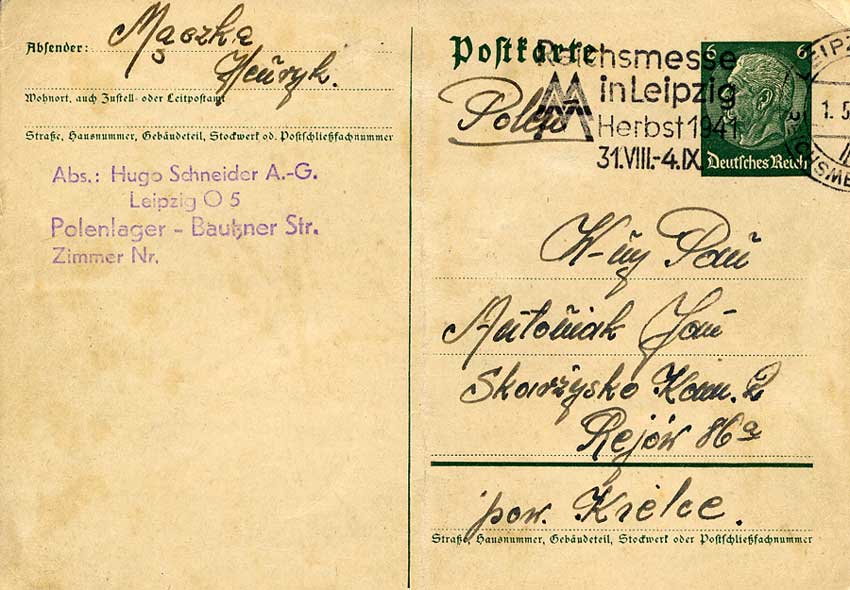 Absender: Mączka
Henryk.
Wohnort, auch Zustell- oder Leitpostamt
Straße, Hausnummer, Gebäudeteil, Stockwerk od. Postschließfachnummer
Abs.: Hugo Schneider A.-G.
Leipzig O 5
Polenlager - Bautzner Str.
Zimmer Nr.
Postkarte
Polen
Reichsmesse
in Leipzig
Herbst 1941
31.VIII.-4.IX.
6 6
Deutsches Reich
LEIPZ
1. 5
REICHSME
W-ny Pan
Antoniak Jan
Skarżysko Kam. 2
Rejów 86a
pow. Kielce.
Straße, Hausnummer, Gebäudeteil, Stockwerk oder Postschließfachnummer